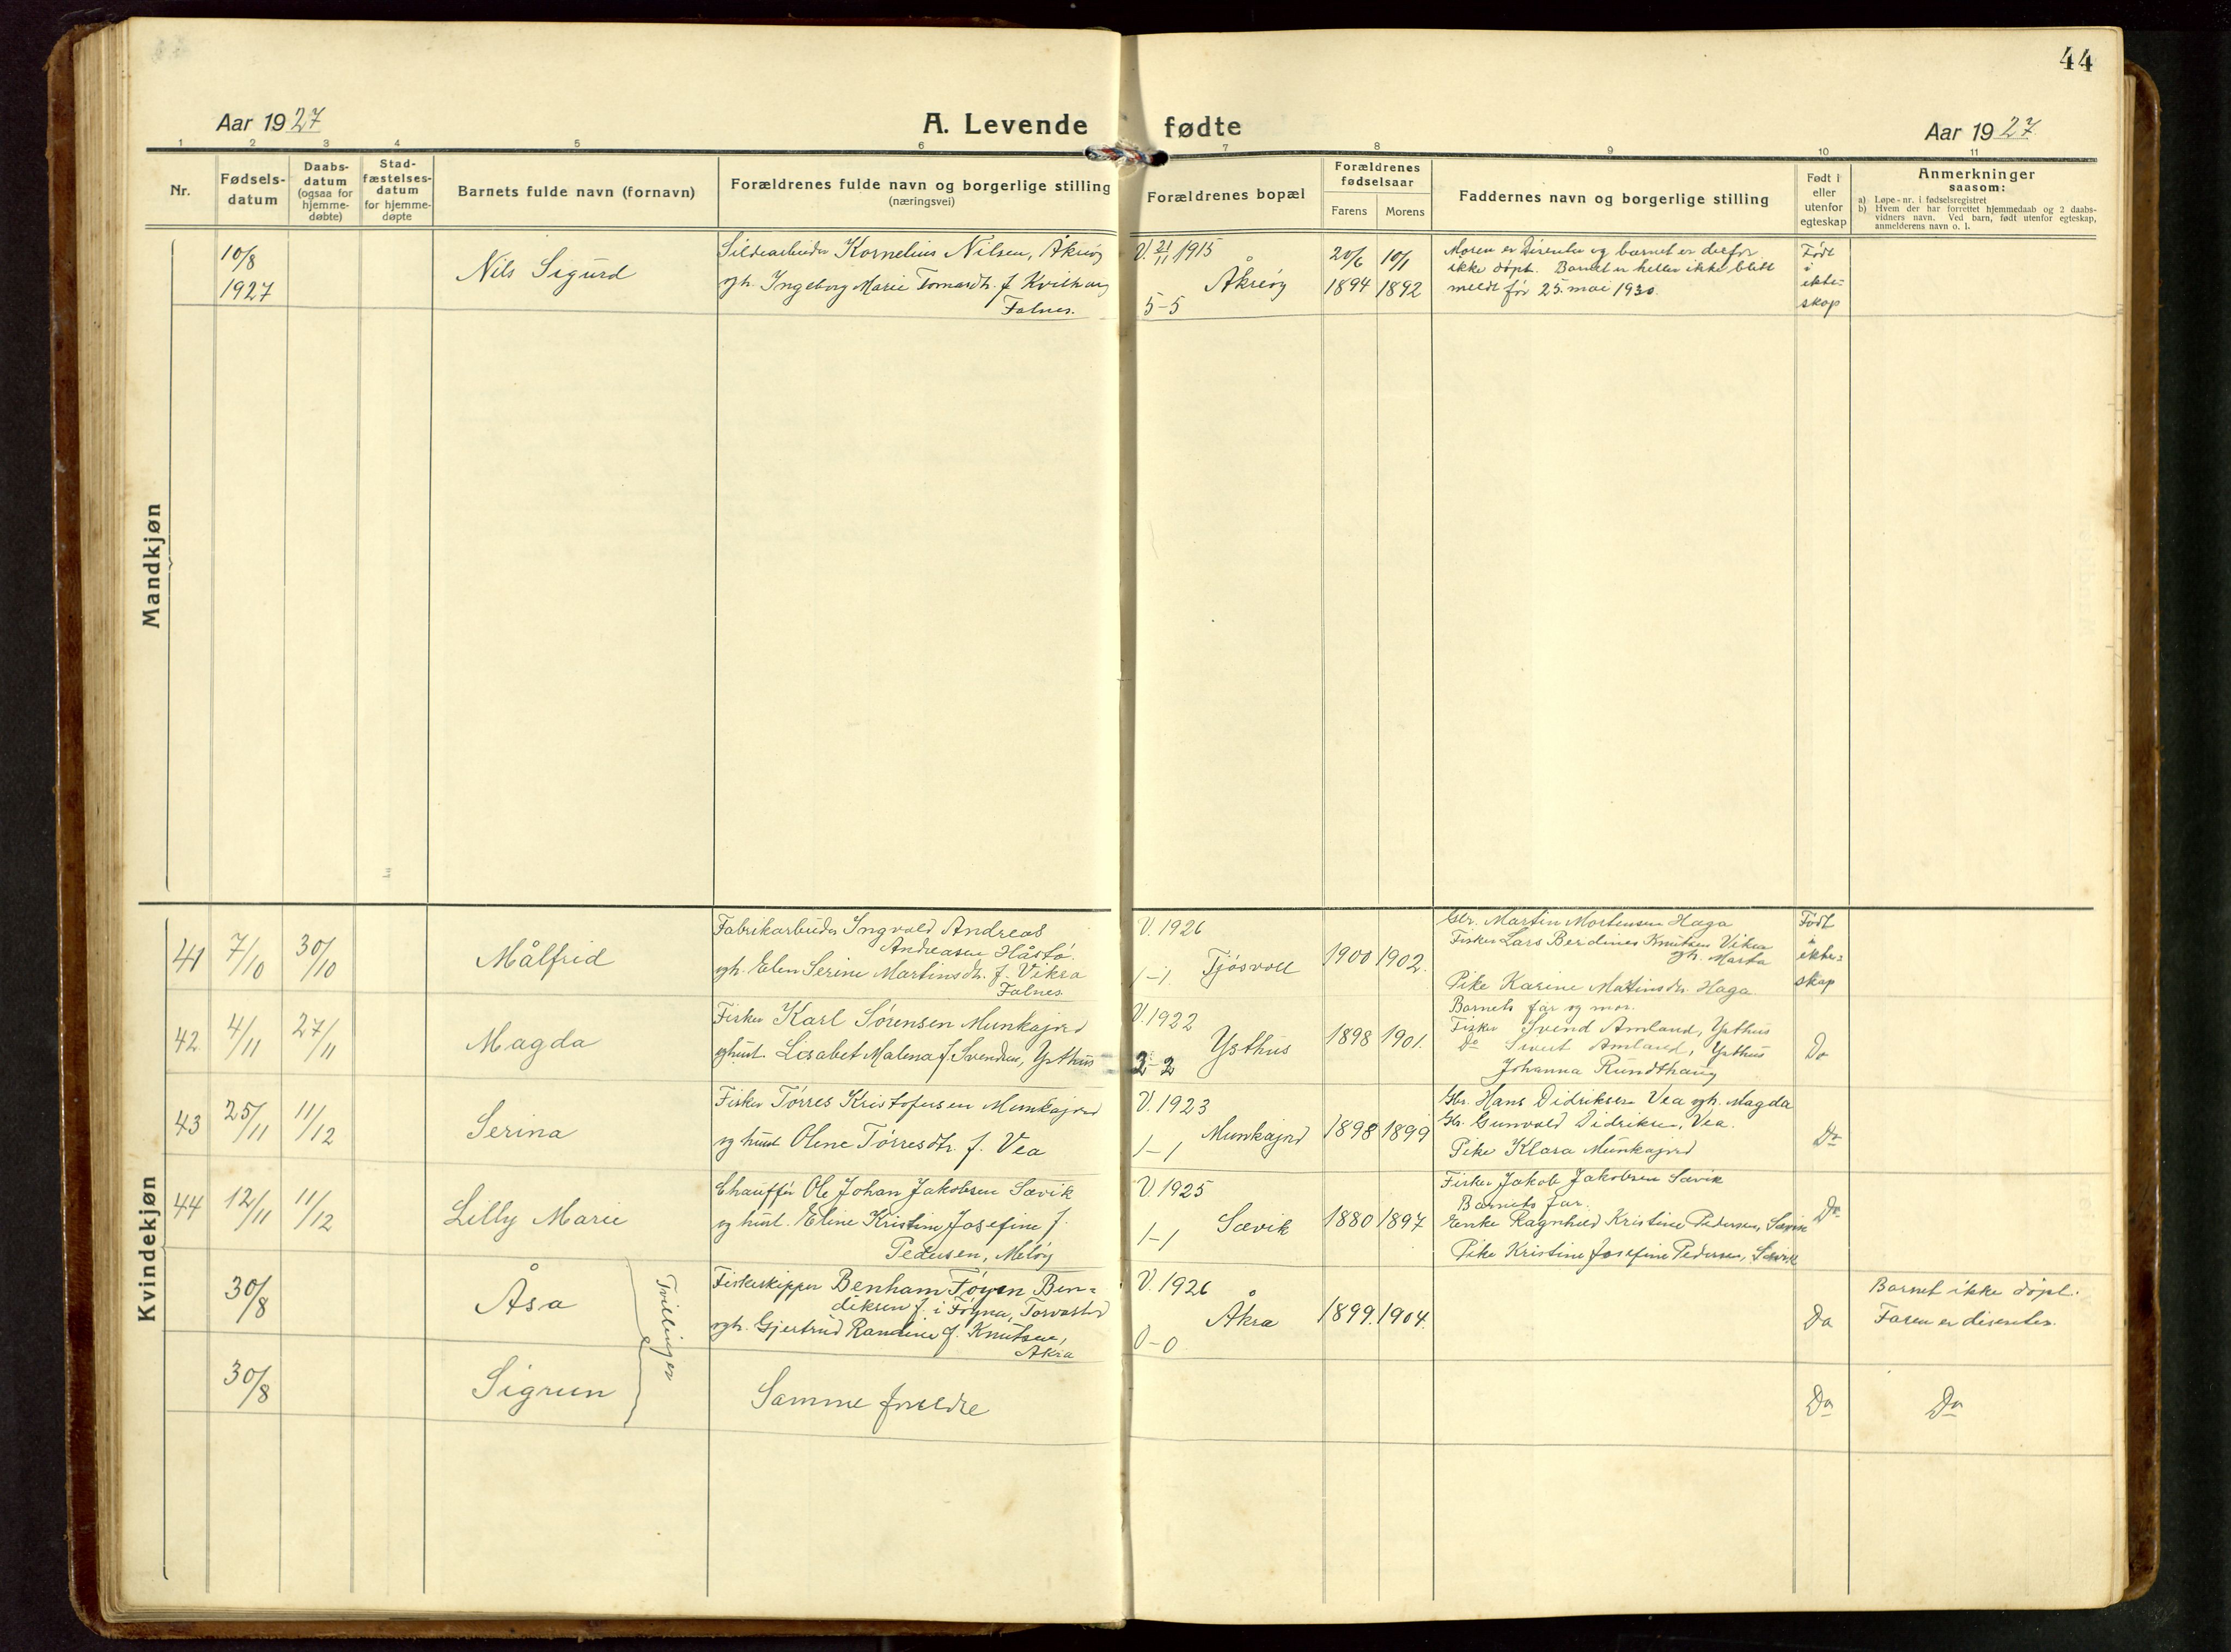 44
Aar 1927
A. Levende fødte
Aar 1927.
1 2 3 4 5 6 7 8 9 10 11
Nr.
Fødsels-
datum
Daabs-
datum
(ogsaa for
hjemme-
døbte)
Stad-
fæstelses-
datum
for hjemme-
døpte
Barnets fulde navn (fornavn)
Forældrenes fulde navn og borgerlige stilling
(næringsvei)
Forældrenes bopæl
Forældrenes
fødselsaar
Farens
Morens
Faddernes navn og borgerlige stilling
Født i
eller
utenfor
egteskap
Anmerkninger
saasom:
a) Løpe-nr. i fødselsregistret
b) Hvem der har forrettet hjemmedaab og 2 daabs-
vidners navn. Ved barn, født utenfor egteskap,
anmelderens navn o. l.
Mandkjøn
10/8
1927
Nils Sigurd
Sildearbeider Kornelius Nilsen, Åkrøy
gh. Ingeborg Marie Tomasdtr. f. Kvilhaug
Falnes.
V. 21/11 1915
Åkrøy
5-5
20/6
1894
10/1
1892
Moren er Disenter og barnet er derfor
ikke døpt. Barnet er heller ikke blitt
meldt før 25. mai 1930.
Født
i
ekte-
skap
Kvindekjøn
41
7/10
30/10
Målfrid
Fabrikarbeider Ingvald Andreas
Andreasen Håstø.
gh. Elen Serine Martinsdtr. f. Vikra
Falnes.
V. 1926
1-1. Tjøsvoll
1900
1902.
Gbr. Martin Mortensen Haga
Fisker Lars Berdines Knutsen Vikra
gh. Marta
Pike Karine Matinsdtr. Haga
Født
i
ekte-
skap
42.
4/11
27/11
Magda
Fisker Karl Sørensen Munkajord
og hust. Lisabet Malena f. Svendsen, Ysthus
V. 1922
2-2 Ysthus
1898
1901.
Barnets far og mor.
Fisker Svend Amland, Ysthus
Do Sivert Amland, Ysthus
Johanna Rundthaug
Do
43
25/11
11/12
Serina
Fisker Tørres Kristofersen Munkajord
og hust Olene Tørresdtr. f. Vea
V. 1923
1-1 Munkajord
1898
1899
Gbr. Hans Didriksen Vea gh. Magda
Gbr. Gunvald Didriksen, Vea.
Pike Klara Munkajord
Do
44
12/11
11/12
Lilly Marie
Chauffør Ole Johan Jakobsen Sævik
og hust. Eline Kristine Josefine f.
Pedersen, Meløy
V. 1925
1-1 Sævik
1880
1897
Fisker Jakob Jakobsen Sævik
Barnets far.
Enke Ragnhild Kristine Pedersen, Sævik
Pike Kristine Josefine Pedersen, Sævik
Do
30/8
Åsa
Tvillinger
Fiskeskipper Benham Føyen Ben-
diksen f. i Føyna, Torvastad
gh. Gjertrud Randine f. Knutsen,
Åkra
V. 1926
0-0 Åkra
1899.
1904.
Do
Barnet ikke døpt.
Faren er disenter.
30/8
Sigrun
Samme foreldre
Do
Do